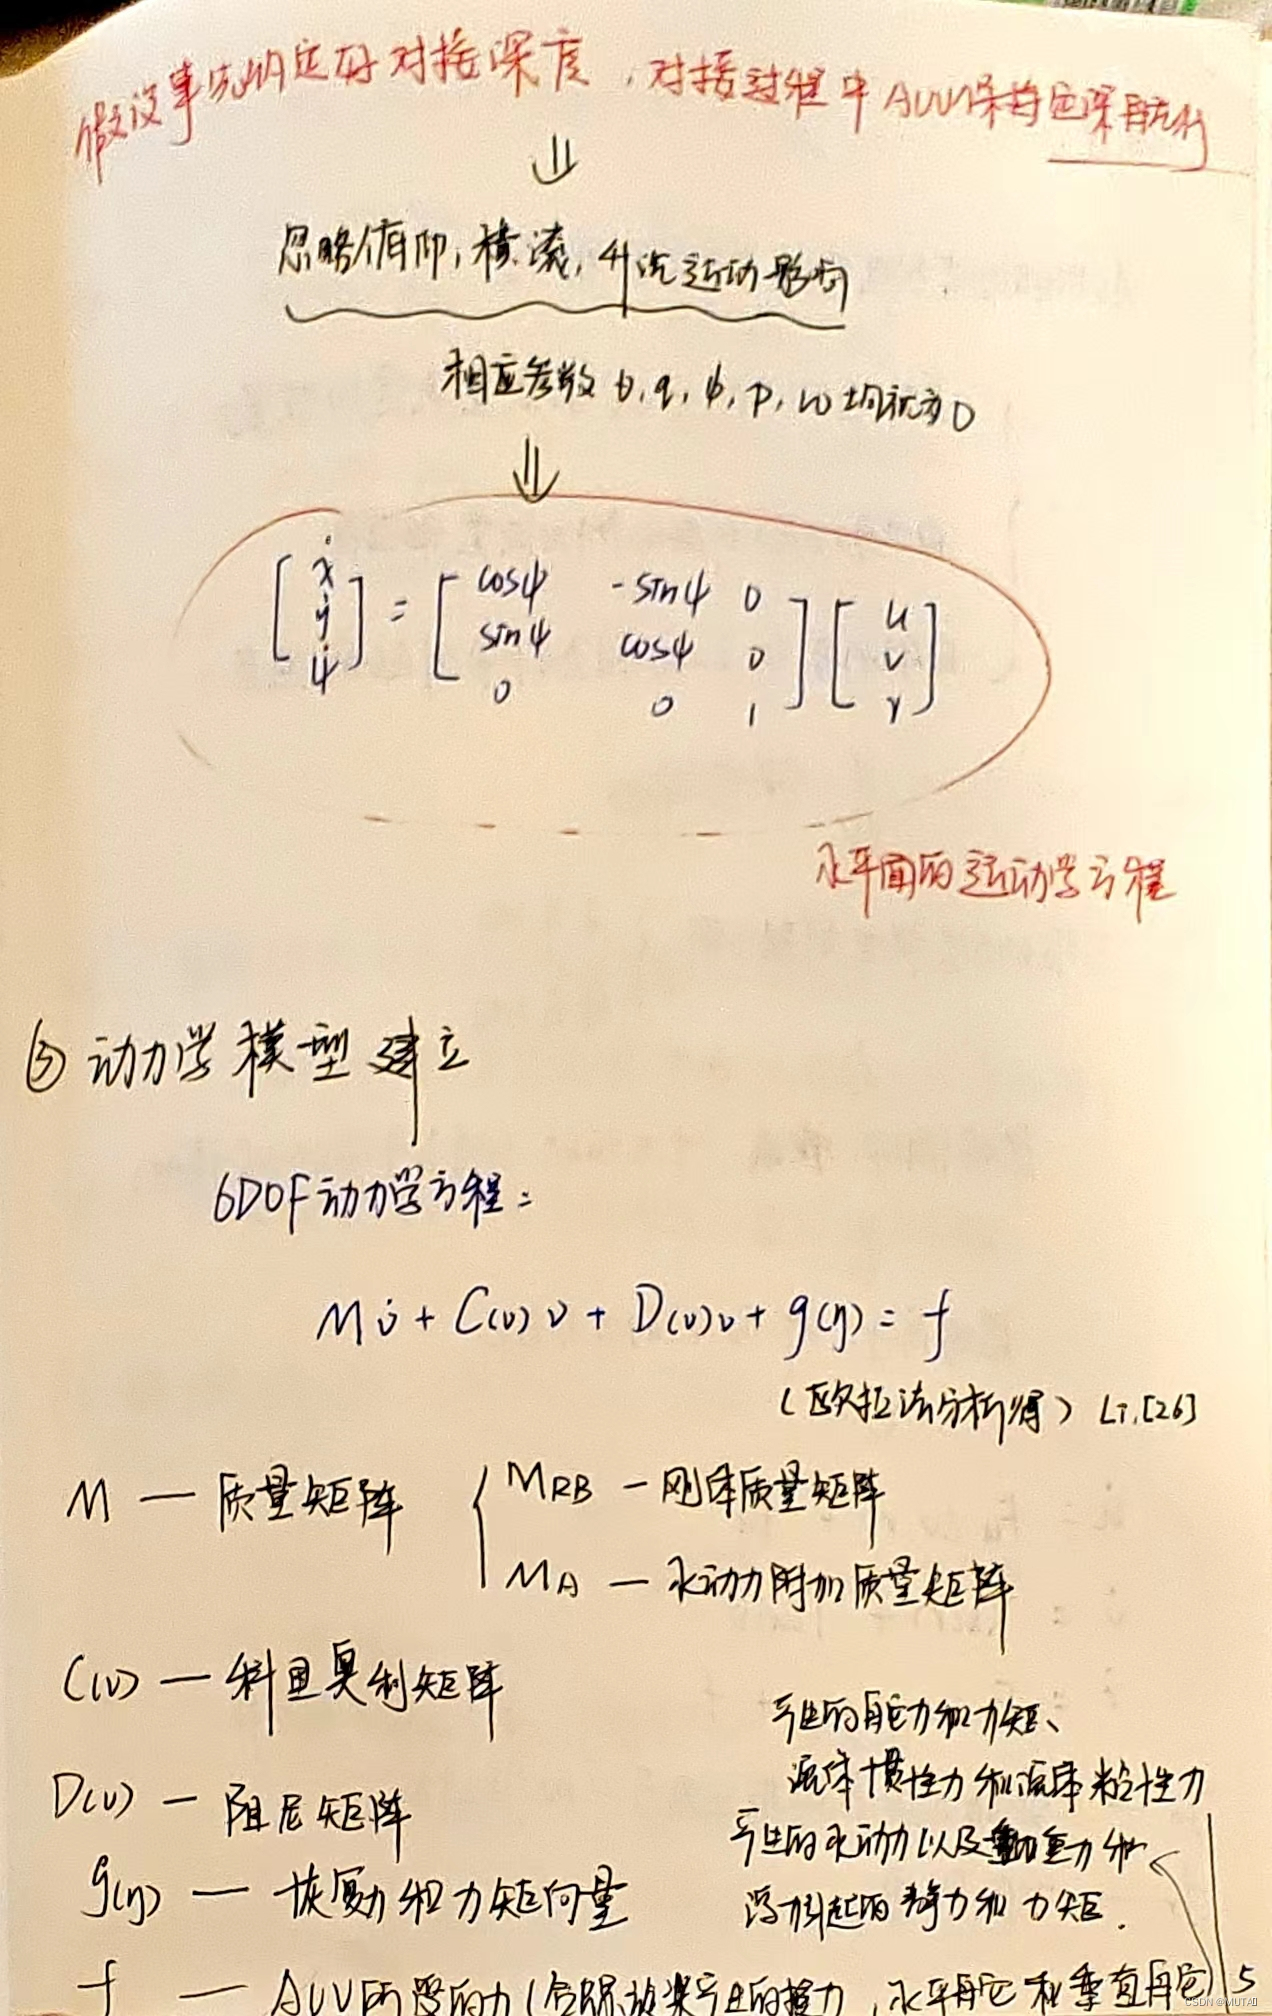 假设事先约定好对接深度，对接过程中AUV保持定深航行
⇓
忽略俯仰，横滚，升沉运动影响
相应参数 θ, q, φ, p, w 均视为0
⇓
[ẋ ẏ ψ̇] = [cosψ -sinψ 0 sinψ cosψ 0 0 0 1] [u v r]
水平面的运动学方程
③ 动力学模型建立
6DOF动力学方程:
Mν̇ + C(ν)ν + D(ν)ν + g(η) = f
(欧拉法分析得) Li.[26]
M — 质量矩阵 { MRB — 刚体质量矩阵
MA — 水动力附加质量矩阵
C(ν) — 科里奥利矩阵
D(ν) — 阻尼矩阵
g(η) — 恢复力和力矩向量
产生的舵力和力矩、
流体惯性力和流体粘性力
产生的水动力以及重力和
浮力引起的静力和力矩.
f — AUV所受的力(含螺旋桨产生的推力，水平舵和垂直舵
5
CSDN @MUTA